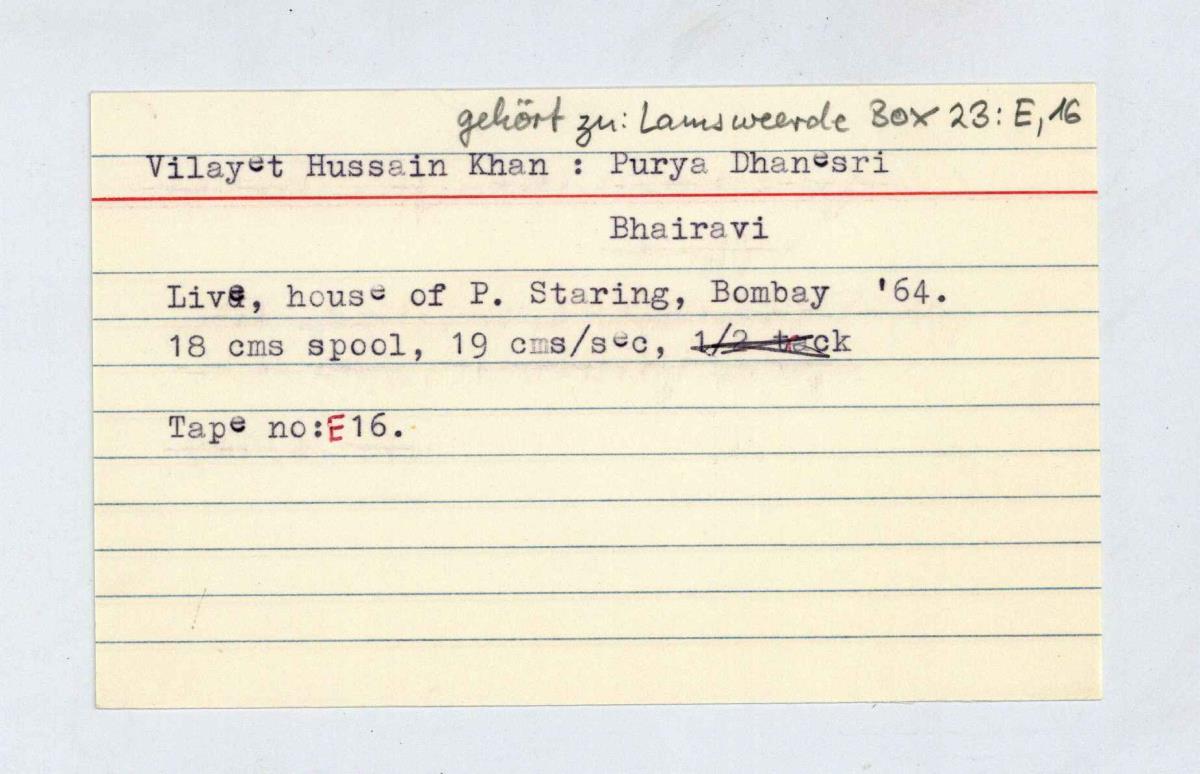 gehört zu: Lamsweerde Box 23: E, 16
Vilayet Hussain Khan : Purya Dhanesri
Bhairavi
Live, house of P. Staring, Bombay '64.
18 cms spool, 19 cms/sec, 1/2 track
Tape no:E16.